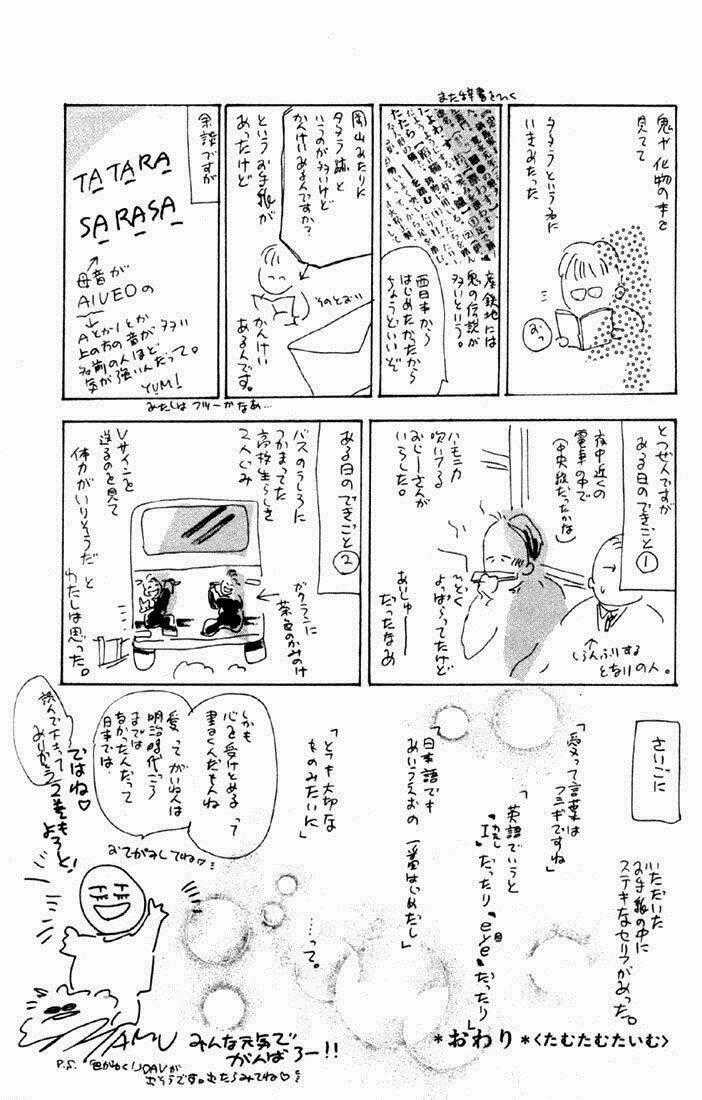 また辞書をひく
鬼や化物の本を
見てて
タタラという名に
いきあたった
産鉄地には
鬼の伝説が
多いという。
西日本から
はじめたかったから
ちょうどいいぞ
岡山あたりに
タタラ跡と
いうのが多いけど
かんけいあるんですか？
というお手紙が
あったけど
そのとおり
かんけい
あるんです。
余談ですが
TATARA
SARASA
母音が
AIUEOの
AとかIとか
上の方の音が多い
名前の人ほど
気が強いんだって。
YUM!
わたしはフルーかなあ…
とつぜんですが
ある日のできごと①
夜中近くの
電車の中で
（中央線だったかな）
ハーモニカ
吹いてる
おじーさんが
いらした。
よっぱらってたけど
あいじゅー
だったなあ
しらんふりする
となりの人。
ある日のできごと②
バスのうしろに
つかまってた
高校生らしき
2人ぐみ
ガクランに
茶色のかみのけ
Vサインを
送るのを見て
体力がいりそうだ と
わたしは思った。
さいごに
いただいた
お手紙の中に
ステキなセリフがあった。
「愛って言葉は
フシギですね」
「英語でいうと
"I"だったり "eye"だったり」
「日本語でも
あいうえおの 一番はじめだし」
「とても大切な
ものみたいに」
……って。
しかも
心を受けとめる って
書くんだもんね
愛ってがいねんは
明治時代ごろ
までは
なかったんだって
日本では。
おてがみしてね♡
読んで下さって
ありがとう
ではね♡
2巻もよろしく！
TAMU
みんな元気で
がんばろー!!
*おわり*<たむたむたいむ>